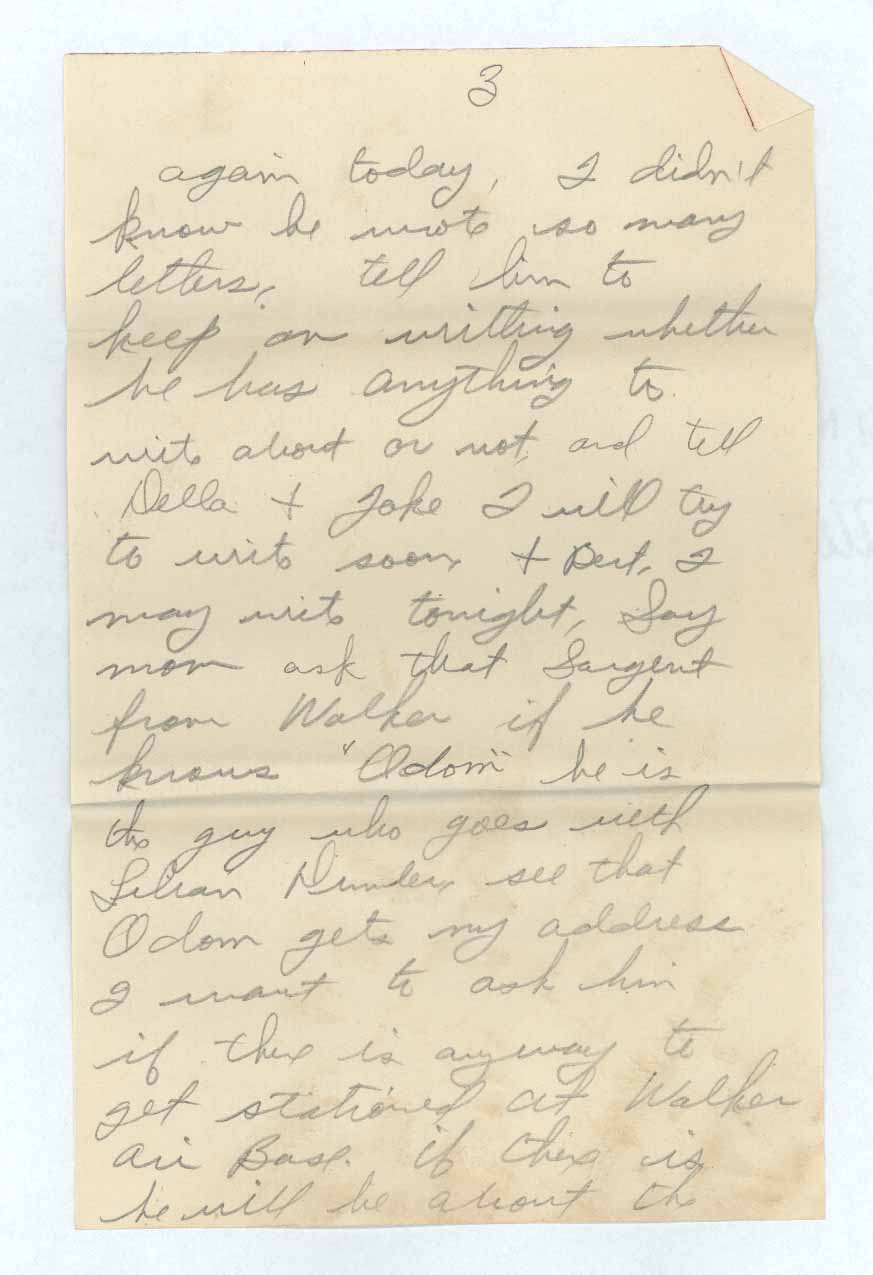 3
again today, I didn't
know he wrote so many
letters, tell him to
keep on writting whether
he has anything to
write about or not, and tell
Della + Jake I will try
to write soon, + Bert, I
may write tonight, Say
mom ask that Sargent
from Walker if he
knows "Odom" he is
the guy who goes with
Lilian see that
Odom gets my address
I want to ask him
if there is anyway to
get stationed at Walker
air Base. if there is
he will be about the